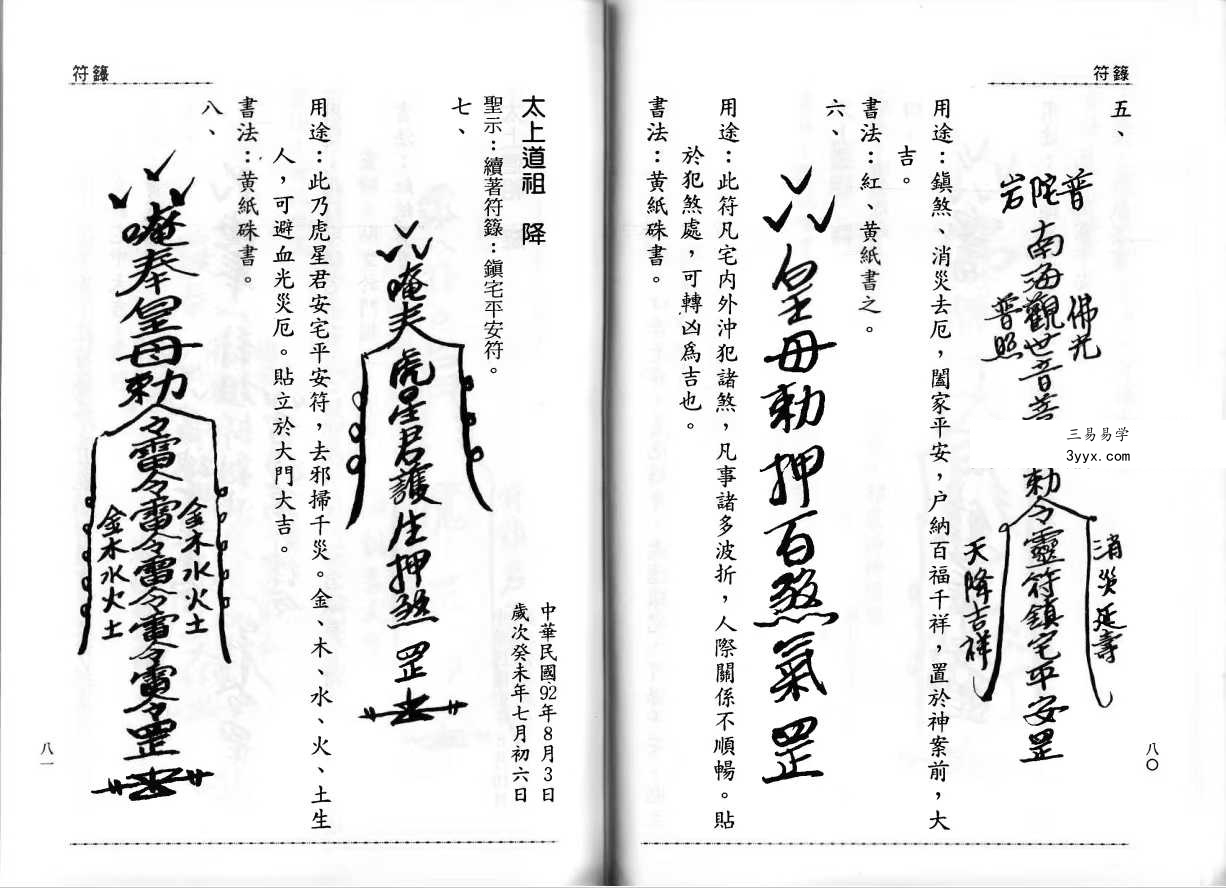 符籙
五、
普陀岩
南海觀世音菩
佛光
普照
勅令靈符鎮宅平安罡
消災延壽
天降吉祥
用途：鎮煞、消災去厄，闔家平安，户納百福千祥，置於神案前，大
吉。
書法：紅、黃紙書之。
六、
皇母勅押百煞氣罡
用途：此符凡宅內外沖犯諸煞，凡事諸多波折，人際關係不順暢。貼
於犯煞處，可轉凶爲吉也。
書法：黃紙硃書。
八〇
三易易学
3yyx.com
符籙
太上道祖 降
聖示：續著符籙：鎮宅平安符。
中華民國92年8月3日
歲次癸未年七月初六日
七、
虎星君護生押煞罡
用途：此乃虎星君安宅平安符，去邪掃千災。金、木、水、火、土生
人，可避血光災厄。貼立於大門大吉。
書法：黃紙硃書。
八、
唵奉皇母勅令雷令雷令雷令雷令雷令罡
金木水火土
金木水火土
八一